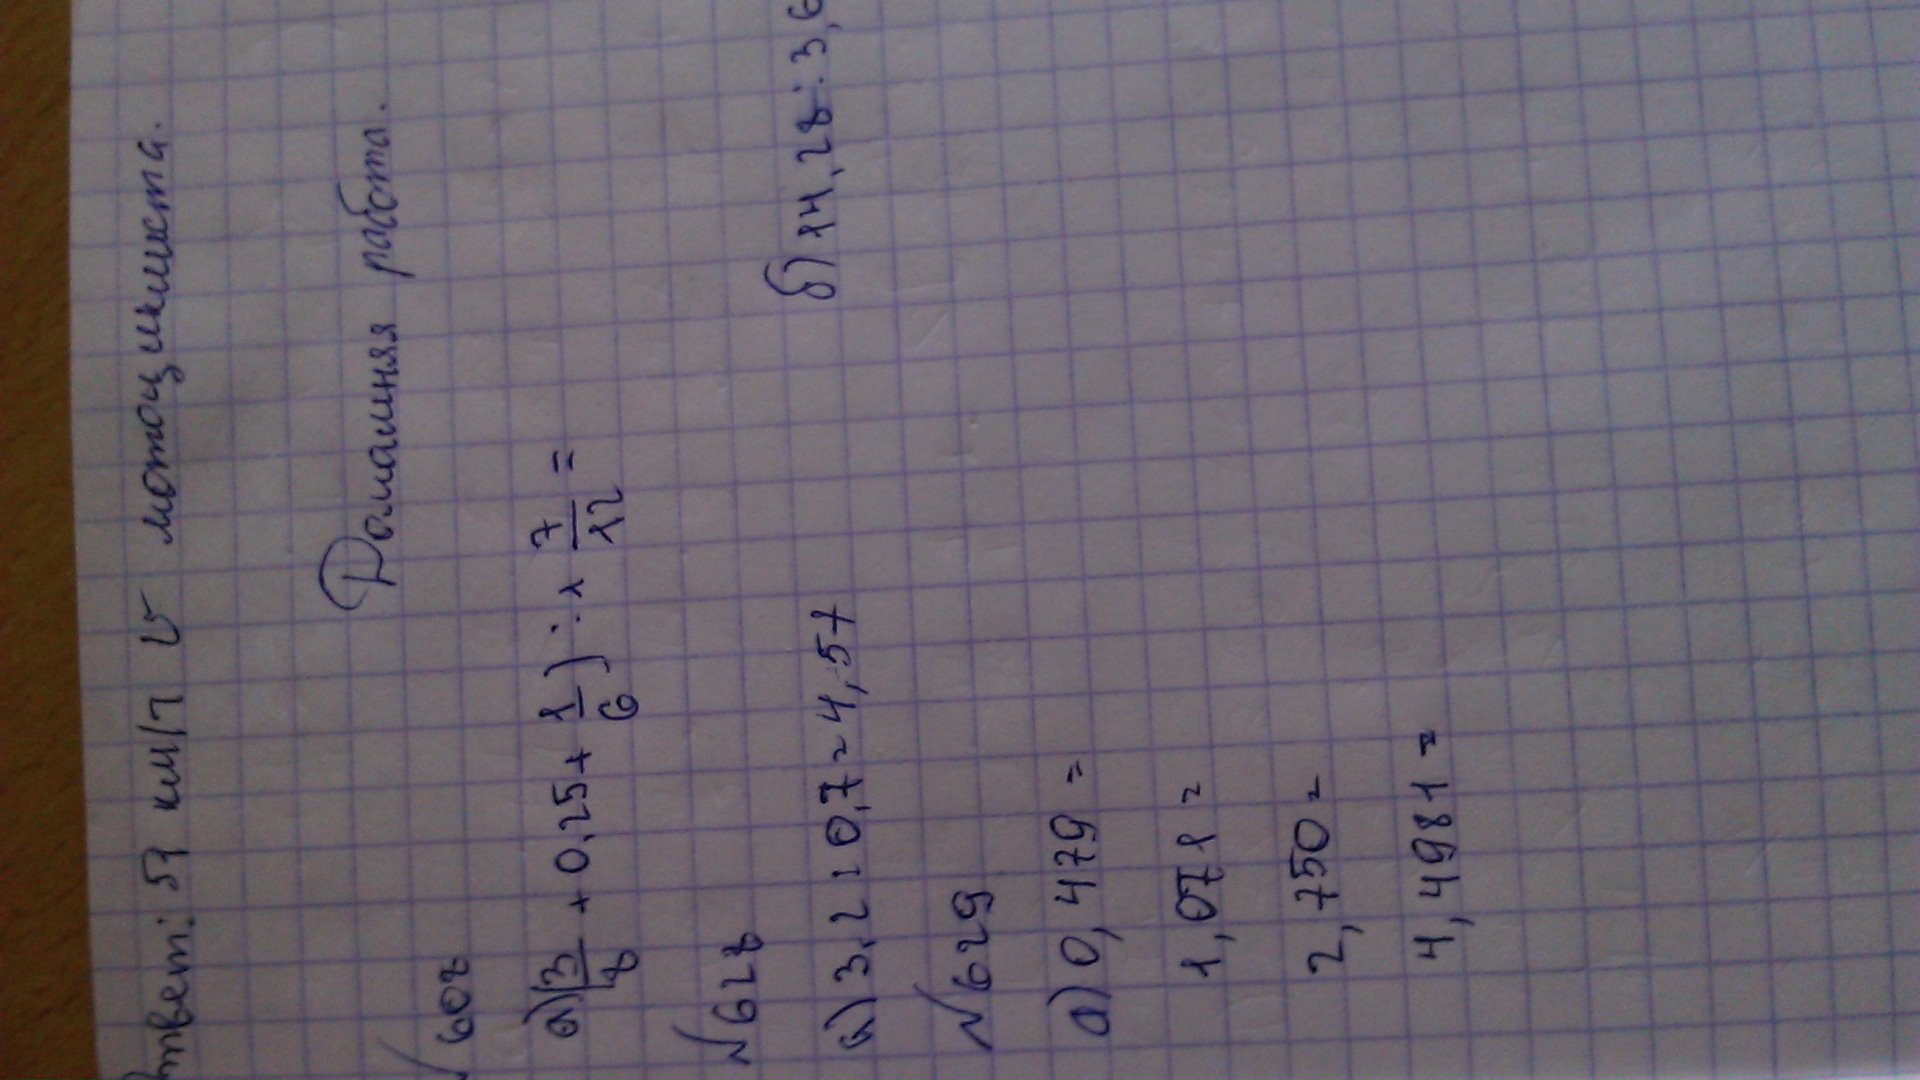 твет: 51 км/ч v мотоциклиста.
Домашняя работа.
√ 608
а)(3/8 + 0,25 + 1/6) : 1 7/12 =
№628
а) 3,2 : 0,7 = 4,57 б) 14,28 : 3,6
№629
а) 0,479 =
1,071 =
2,750 =
4,4981 =